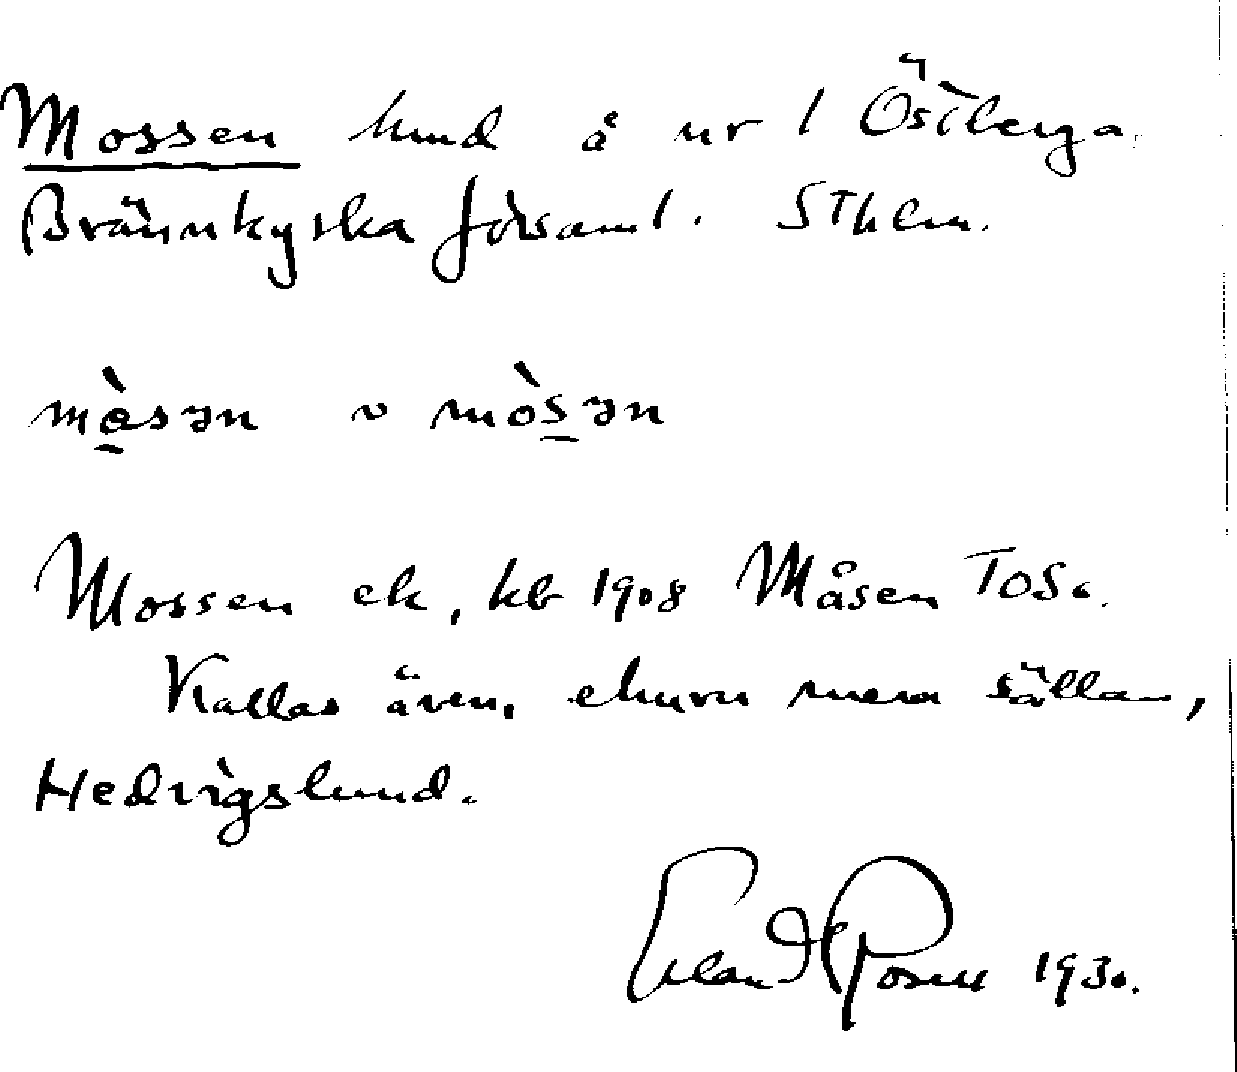 Mossen hmd å nr 1 Östberga.
Brännkyrka församl. Sthlm.
mòsən v mòsən
Mossen ek, kb 1908 Måsen TOSa.
Kallas även, ehuru mera sällan,
Hedvigslund.
Erland Rosell 1930.